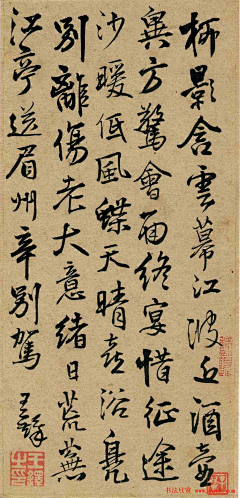 柳影含雲幕江波近酒壺
異方驚會面終宴惜征途
沙暖低風蝶天晴喜浴鳧
別離傷老大意緒日荒蕪
江亭送眉州辛別駕 王鐸
王鐸之印
书法欣赏